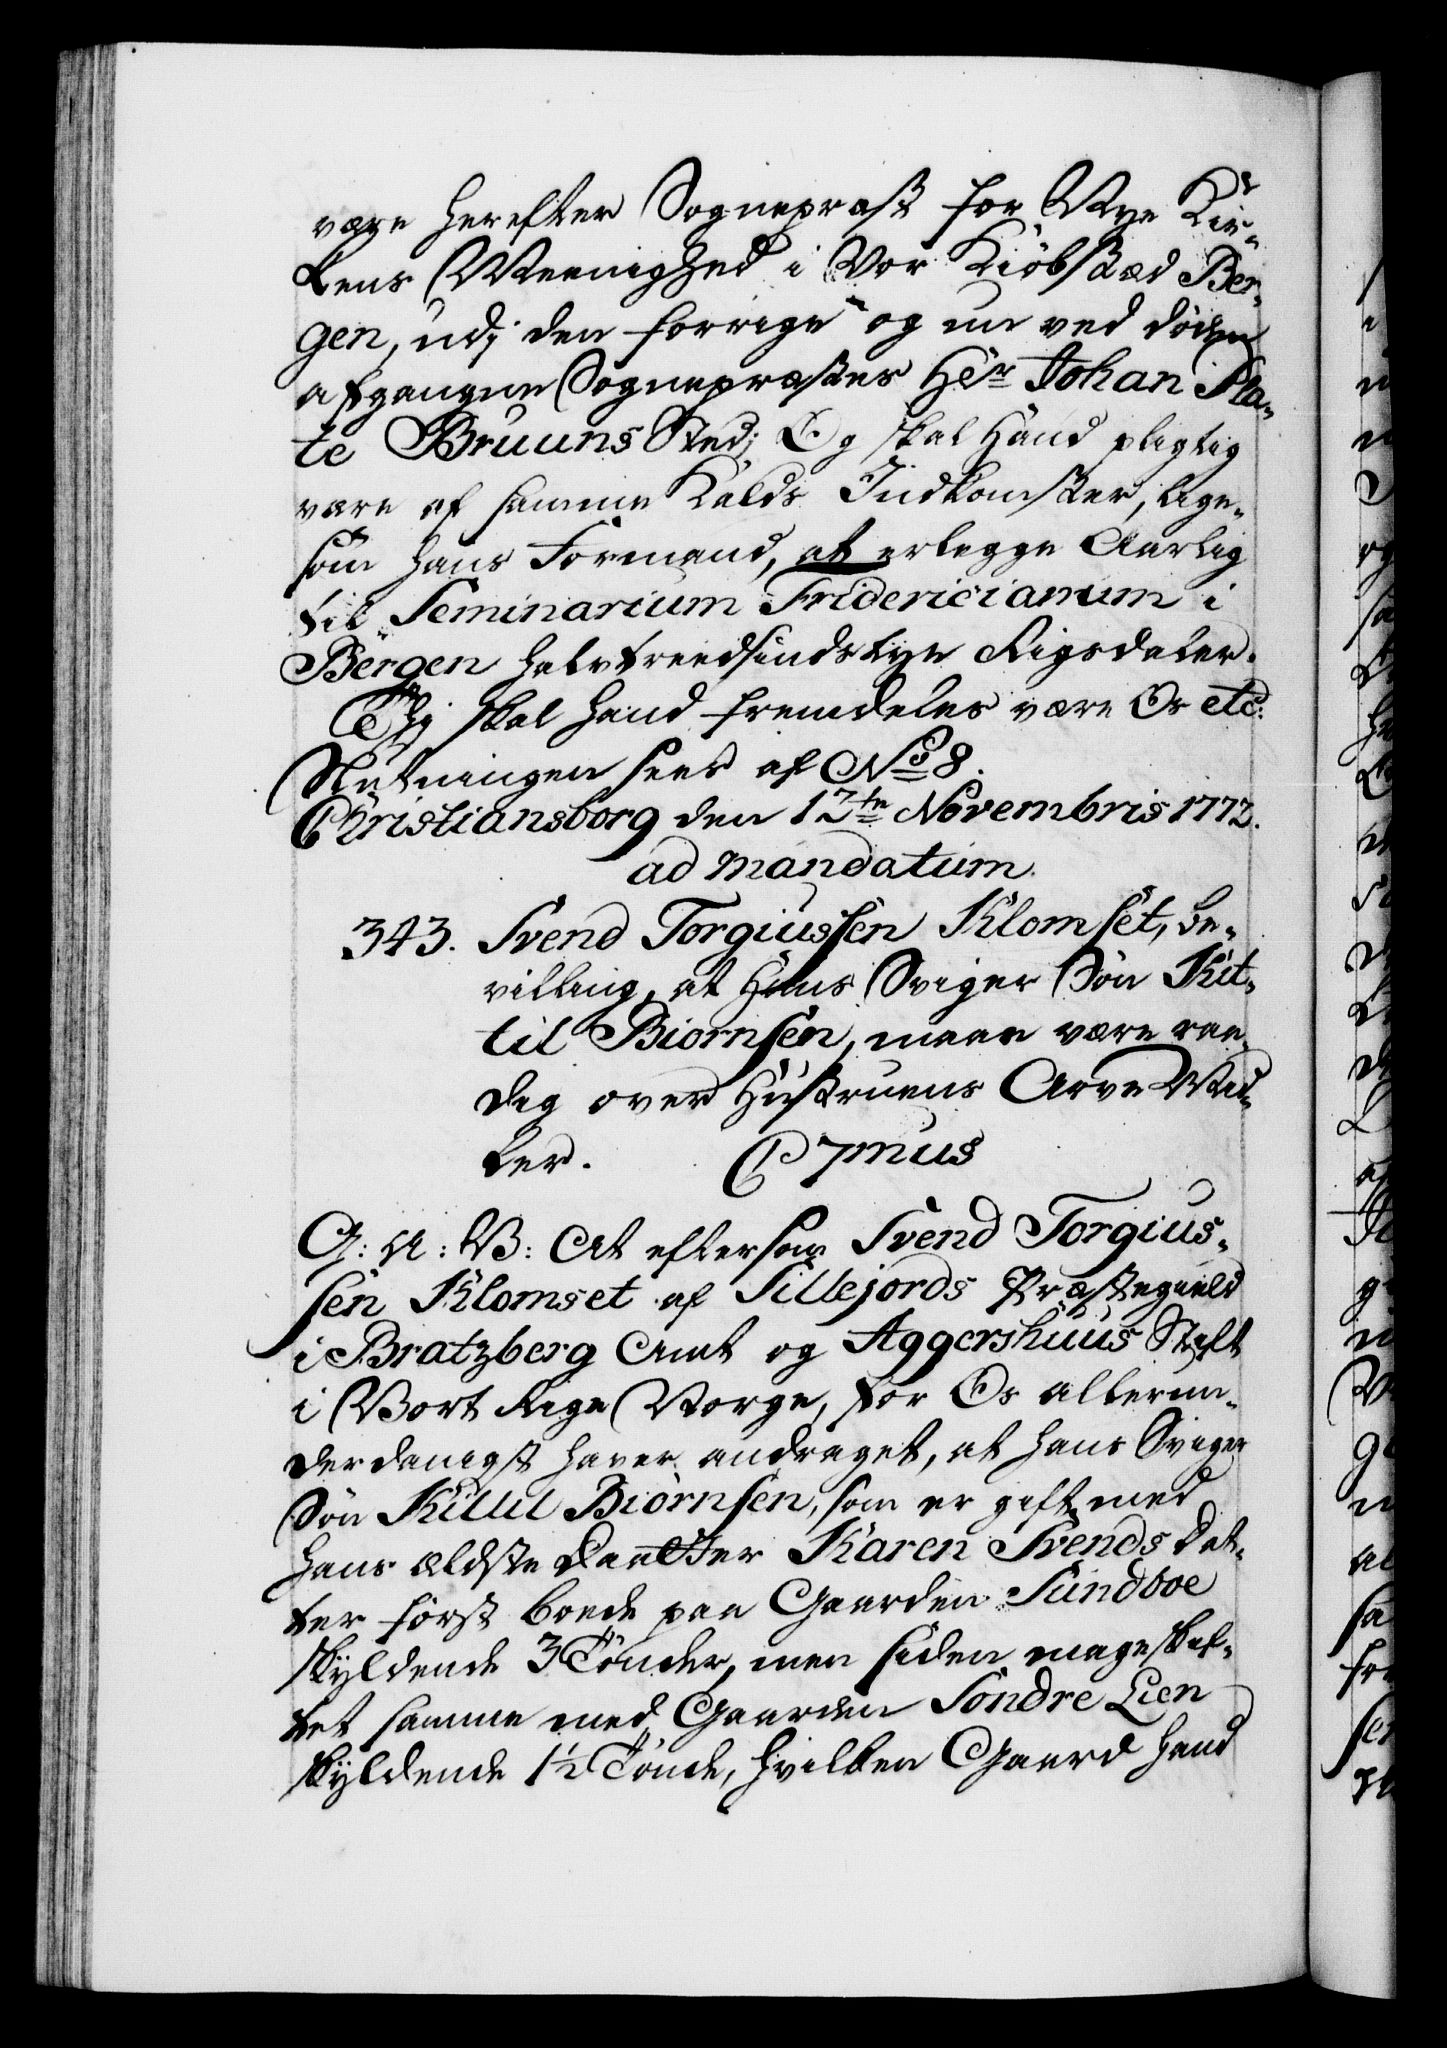 være herefter Sognepræst for Nye Kir-
kens Meenighed i Vor Kiøbstæd Ber-
gen, udj den forrige og nu ved døden
afgangne Sognepræstes Hêr Johan Pla-
te Bruuns Sted; Og skal Hand pligtig
være af samme Kalds Indkomster, lige-
som hans Formand, at erlegge Aarlig
til Seminarium Fridericianum i
Bergen halvtreedsindstyve Rigsdaler.
Thj skal hand fremdeles være Os etc:
Slutningen sees af No 8.
Christiansborg den 12te Novembris 1772.
ad mandatum.
343. Svend Torgiussen Klomset, be-
villing, at Hans Sviger Søn Kit-
til Biørnsen, maae være raa-
dig over Hustruens Arve Mid-
ler. C 7mus
G: A: V: At eftersom Svend Torgius-
sen Klomset af Sillejords Præstegield
i Bratzberg Amt og Aggershuus Stift
i Vort Rige Norge, for Os allerun-
derdanigst haver andraget, at hans Sviger
Søn Kittil Biørnsen, som er gift med
hans ældste Daatter Karen Svends Dat-
ter først boede paa Gaarden Sundboe
skyldende 3 Tønder, men siden mageskif-
tet samme med Gaarden Søndre Lien
skyldende 1½ Tønde, hvilken Gaard hand